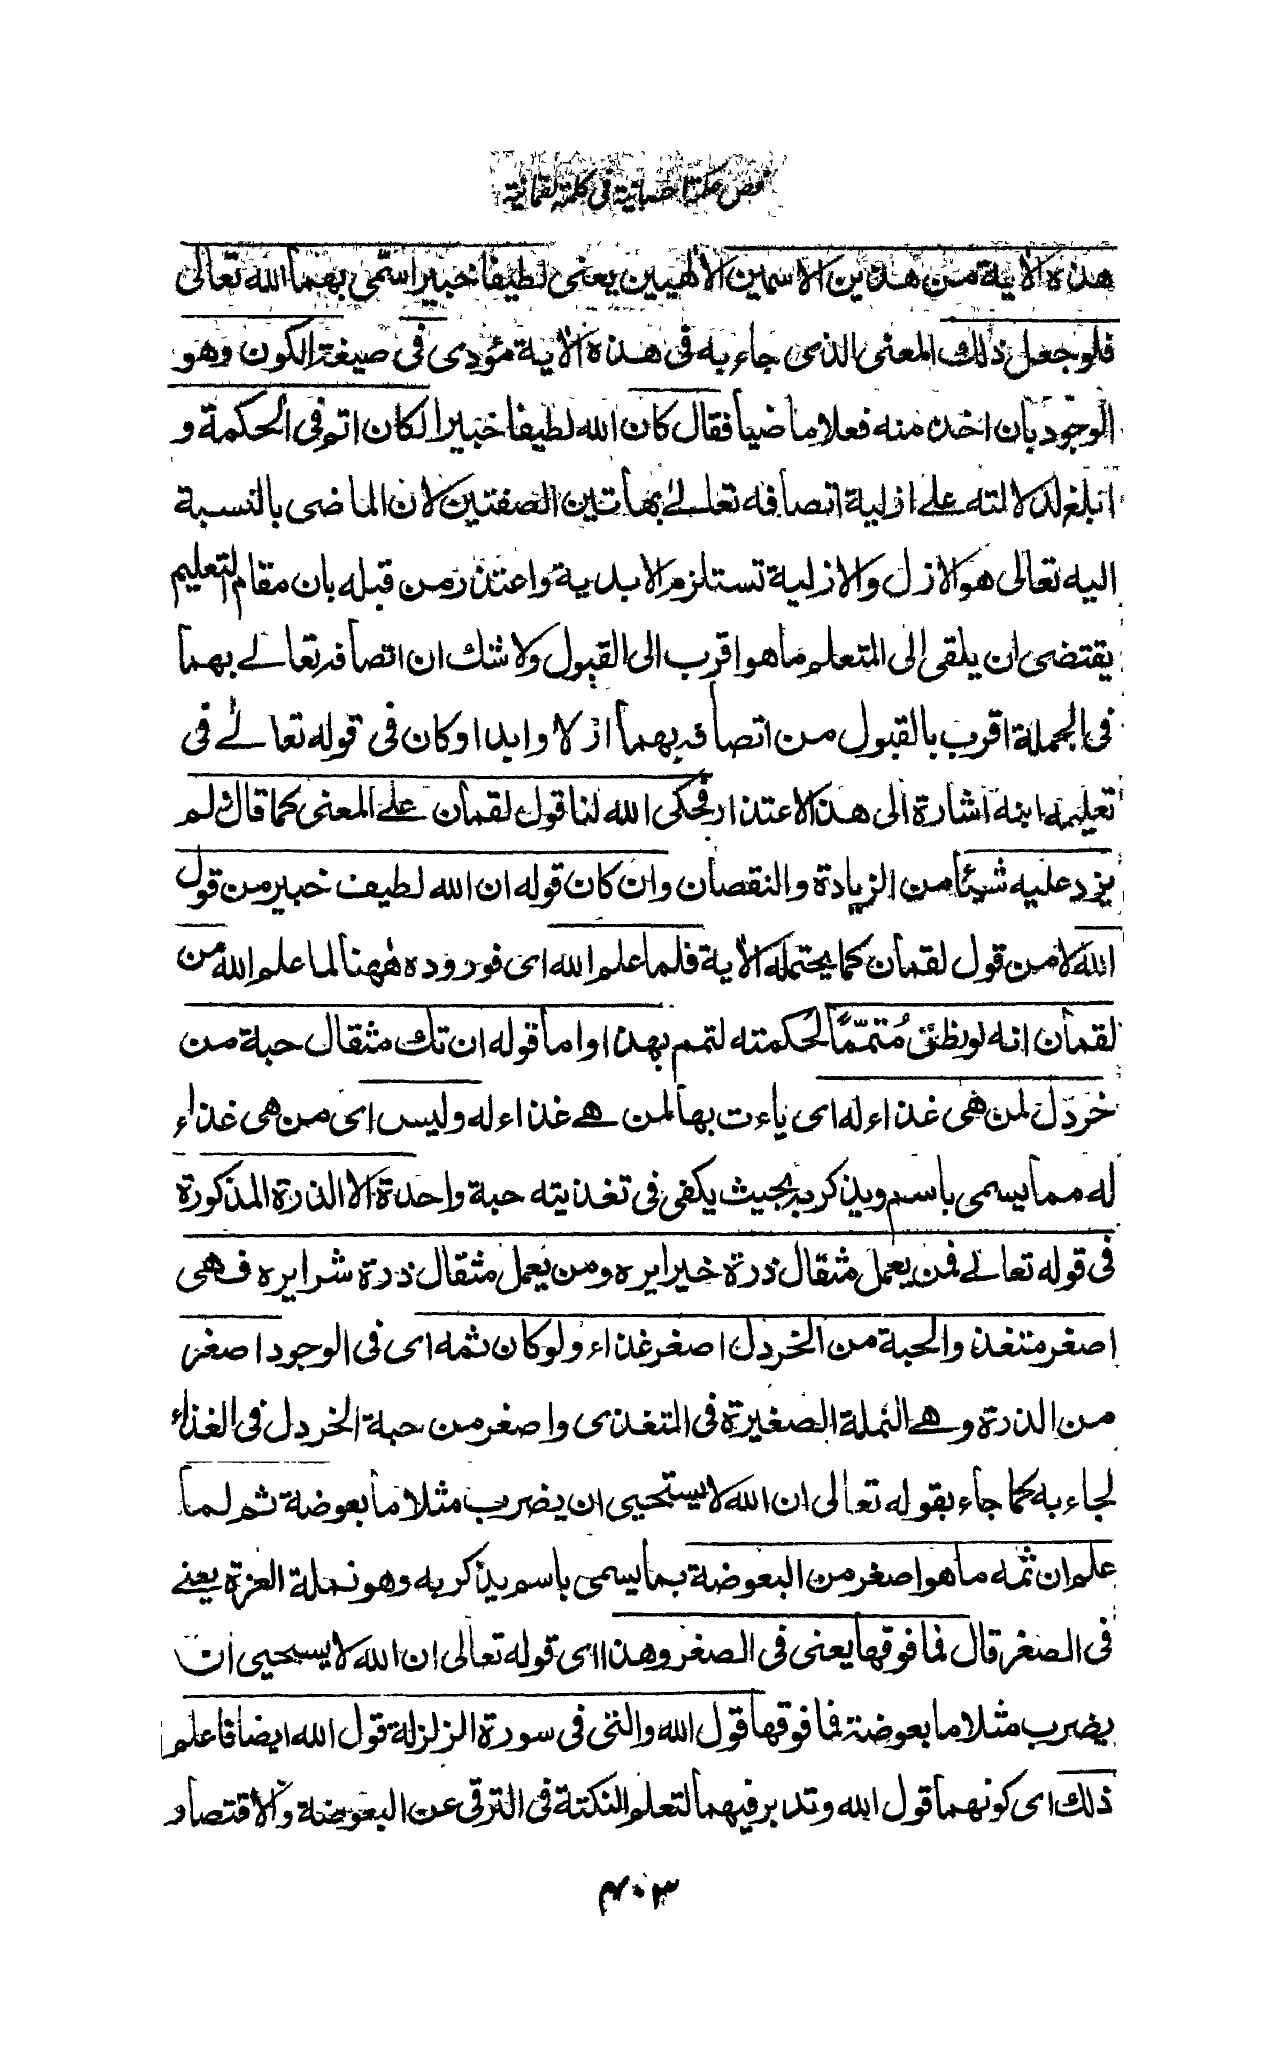 فص حكمة احسانية في كلمة لقمانية
هذه الاية من هذين الاسمين الالهيين يعنى لطيفا خبيرا سمّى بهما الله تعالى
فلو جعل ذلك المعنى الذى جاء به فى هذه الاية مؤدى فى صيغة الكون وهو
الوجود بان اخذ منه فعلا ماضيا فقال كان الله لطيفا خبيرا لكان اتم فى الحكمة و
ابلغ لدلالته على ازلية اتصافه تعالى بهاتين الصفتين لان الماضى بالنسبة
اليه تعالى هو الازل والازلية تستلزم الابدية واعتذر من قبله بان مقام التعليم
يقتضى ان يلقى الى المتعلم ما هو اقرب الى القبول ولا شك ان اتصافه تعالى بهما
فى الجملة اقرب بالقبول من اتصافه بهما ازلا وابدا وكان فى قوله تعالى فى
تعليمه ابنه اشارة الى هذا الاعتذار فحكى الله لنا قول لقمان على المعنى كما قال لم
يزد عليه شيئا من الزيادة والنقصان وان كان قوله ان الله لطيف خبير من قول
الله لا من قول لقمان كما يحتمله الاية فلما علم الله اى فوروده ههنا لما علم الله من
لقمان انه لو نطق مُتمّمًا لحكمته لتمم بهذا واما قوله ان تك مثقال حبة من
خردل لمن هى غذاء له اى ياءت بها لمن هى غذاء له وليس اى من هى غذاء
له مما يسمى باسم ويذكر به بحيث يكفى فى تغذيته حبة واحدة الا الذرة المذكورة
فى قوله تعالى فمن يعمل مثقال ذرة خيرا يره ومن يعمل مثقال ذرة شرا يره فهى
اصغر متغذ والحبة من الخردل اصغر غذاء ولو كان ثمه اى فى الوجود اصغر
من الذرة وهى النملة الصغيرة فى التغذى واصغر من حبة الخردل فى الغذاء
لجاء به كما جاء بقوله تعالى ان الله لا يستحيى ان يضرب مثلا ما بعوضة ثم لما
علم ان ثمه ما هو اصغر من البعوضة بما يسمى باسم يذكر به وهو نملة العزة يعنى
فى الصغر قال فما فوقها يعنى فى الصغر وهذا اى قوله تعالى ان الله لا يستحيى ان
يضرب مثلا ما بعوضة فما فوقها قول الله والتى فى سورة الزلزلة قول الله ايضا فاعلم
ذلك اى كونهما قول الله وتدبر فيهما لتعلم النكتة فى الترقى عن البعوضة والاقتصار